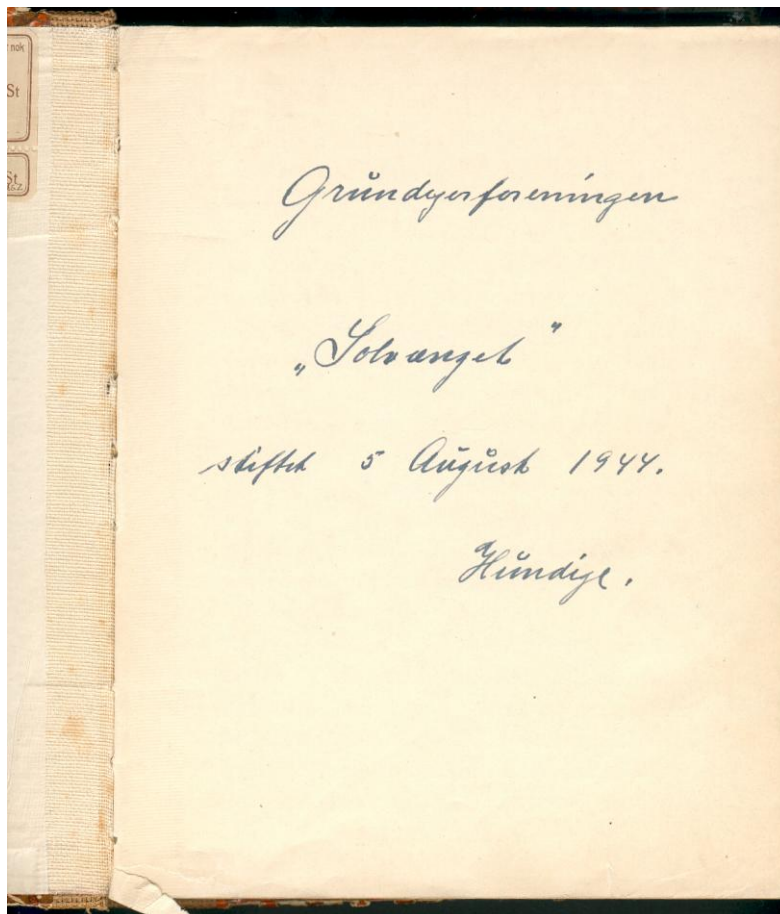 nok
St
St
Grundejerforeningen
„Solvænget"
stiftet 5 August 1944.
Hundige.